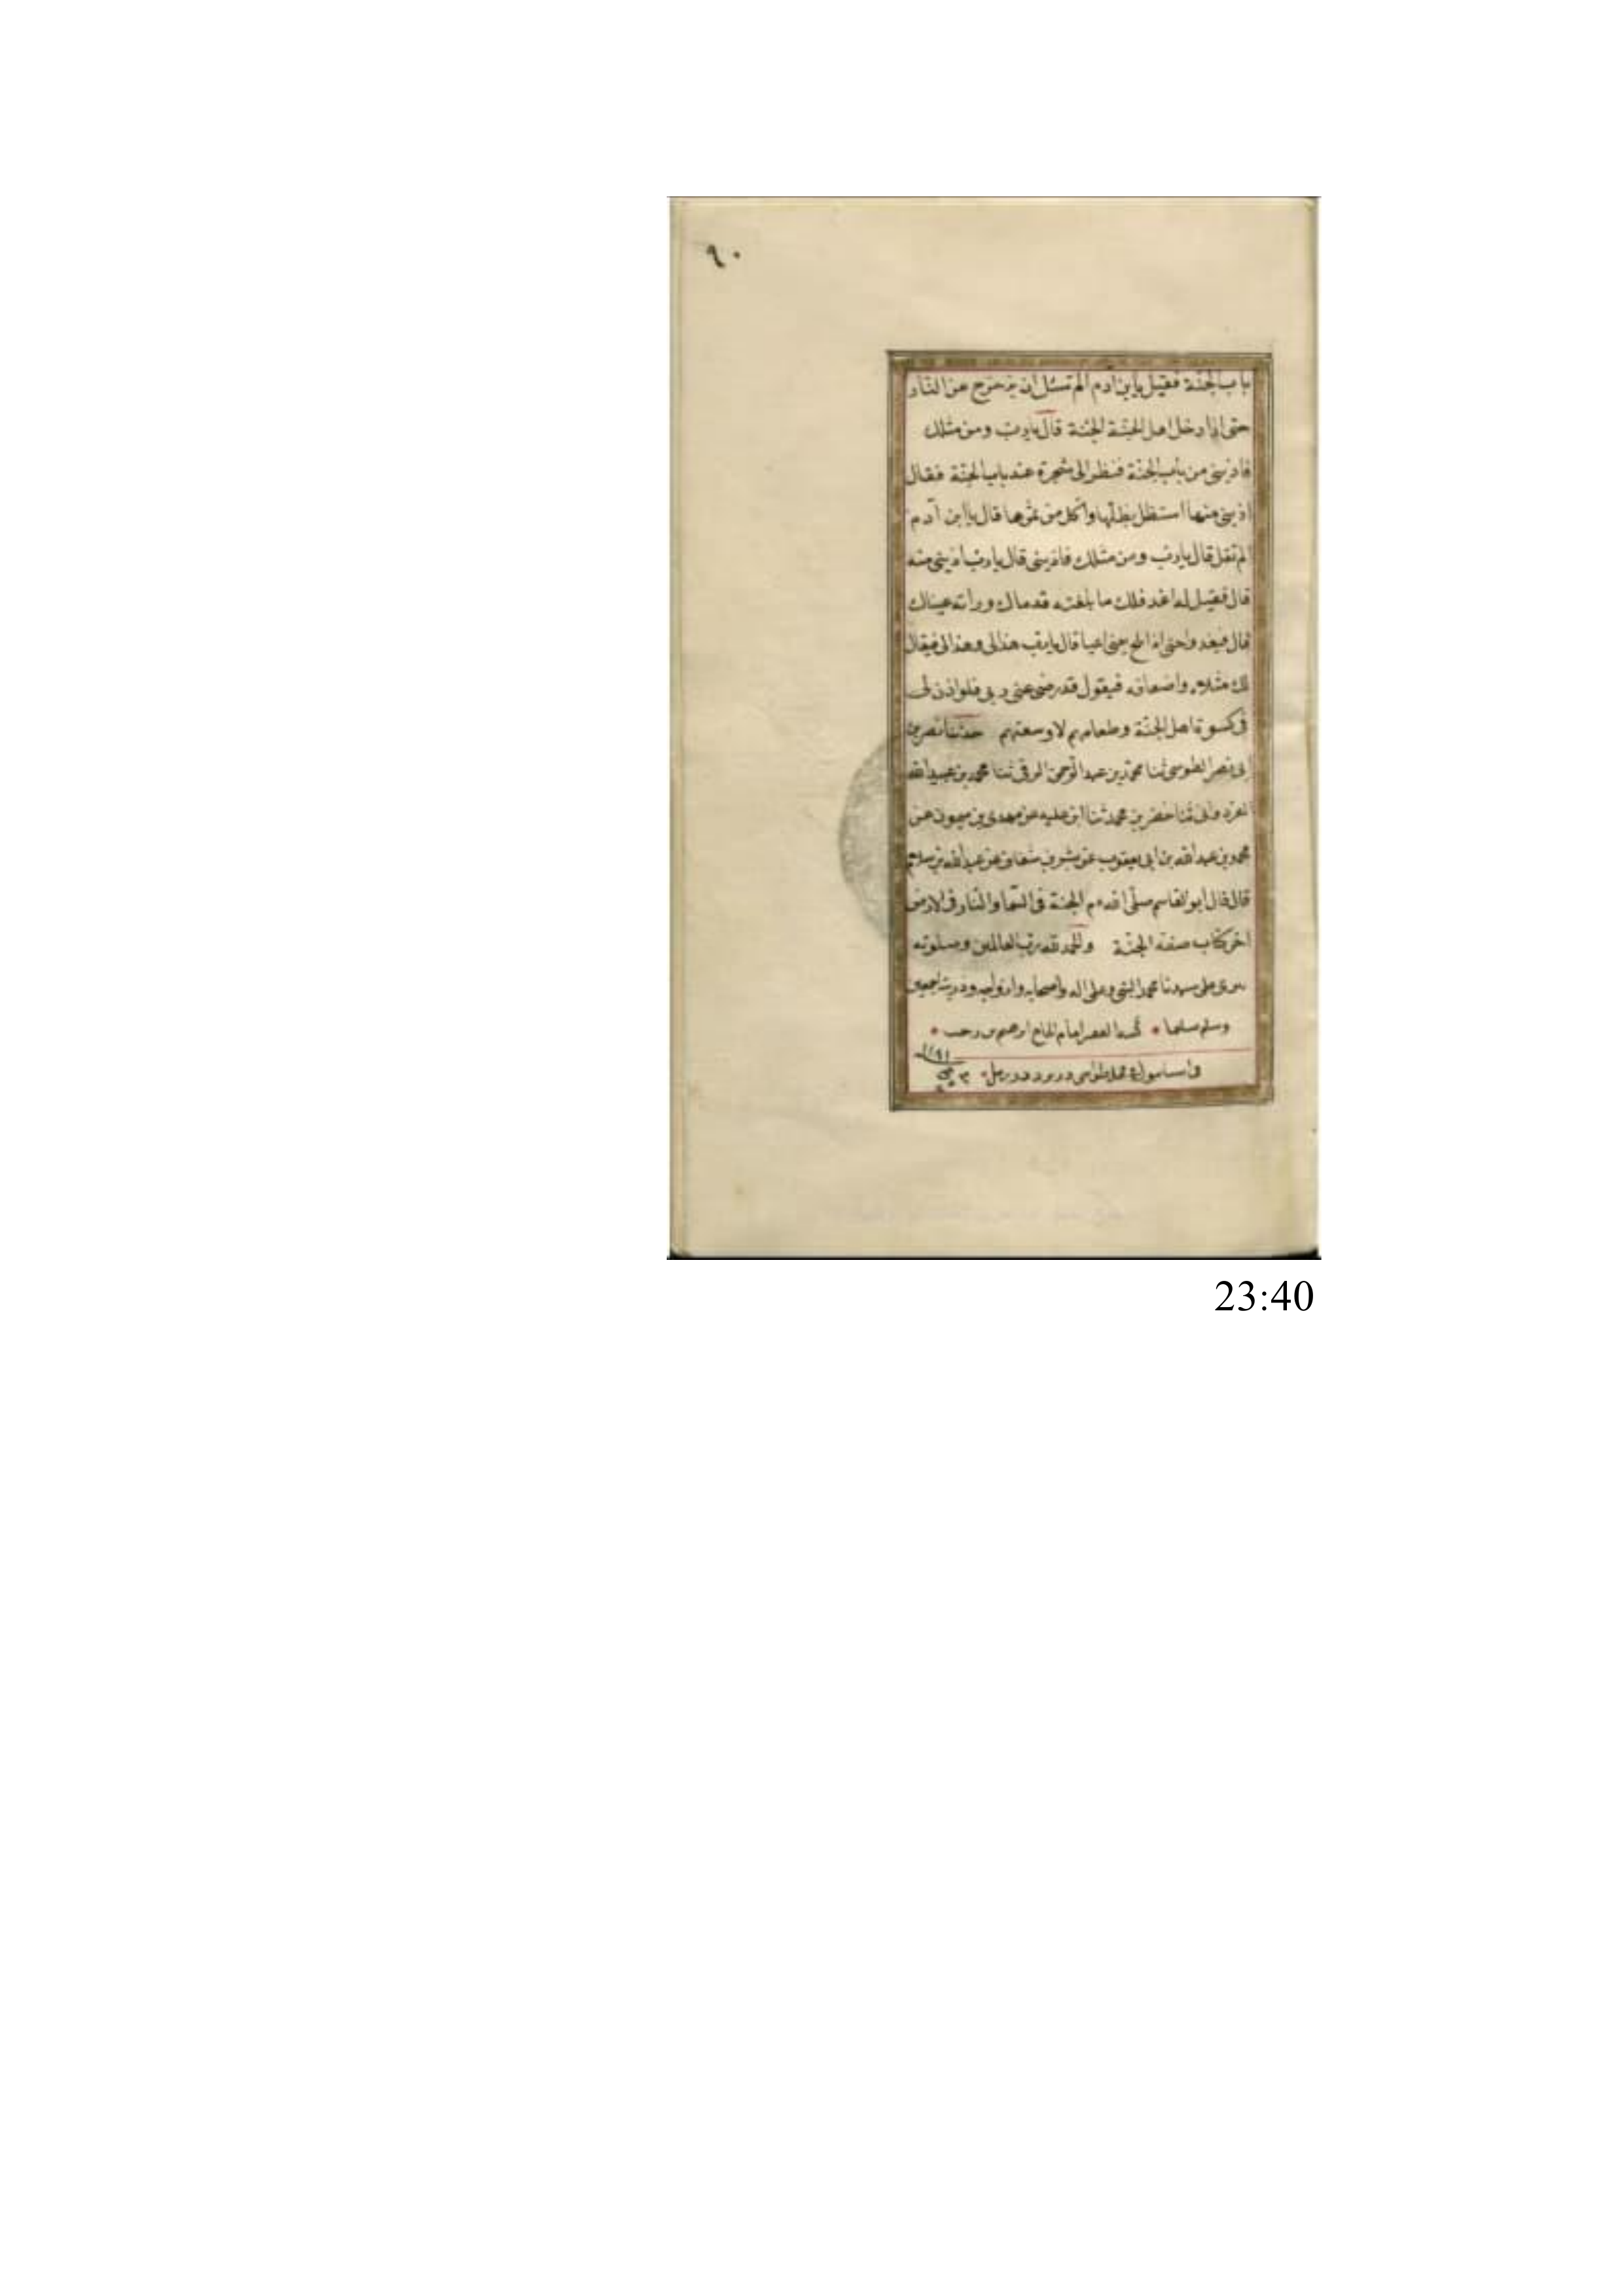 ٩٠
باب الجنة فقيل يا ابن ادم الم تسئل ان تزحزح عن النار
حتى اذا دخل اهل الجنة الجنة قال يا رب ومن مثلك
فادنني من باب الجنة فنظر الى شجرة عند باب الجنة فقال
ادنني منها استظل بظلها واكل من ثمرها قال يا ابن آدم
الم تقل قال يا رب ومن مثلك فادنني قال يا رب ادنني منه
قال فقيل له اغد فلك ما بلغته قدماك وراته عيناك
قال فيغدوا حتى اذا بلح يعني اعيا قال يا رب هذا لي وهذا لي فيقال
لك مثله واضعافه فيقول قد رضي عني ربي فلو اذن لي
في كسوة اهل الجنة وطعامهم لاوسعتهم حدثنا نصر بن
ابي نصر الطوسي ثنا محمد بن عبد الرحمن الرقي ثنا محمد بن عبيد الله
ثنا خضر بن محمد ثنا ابن عليه عن مهدي بن ميمون عن
محمد بن عبد الله بن ابي يعقوب عن بشر بن شغاف عن عبد الله بن سلام
قال قال ابو القاسم صلى الله الجنة في السما والنار في الارض
اخر كتاب صفة الجنة والحمد لله رب العالمين وصلوته
على سيدنا محمد النبي وعلى اله واصحابه وازواجه وذريته اجمعين
وسلم الحاج ابرهيم بن رجب
١١٩١
23:40